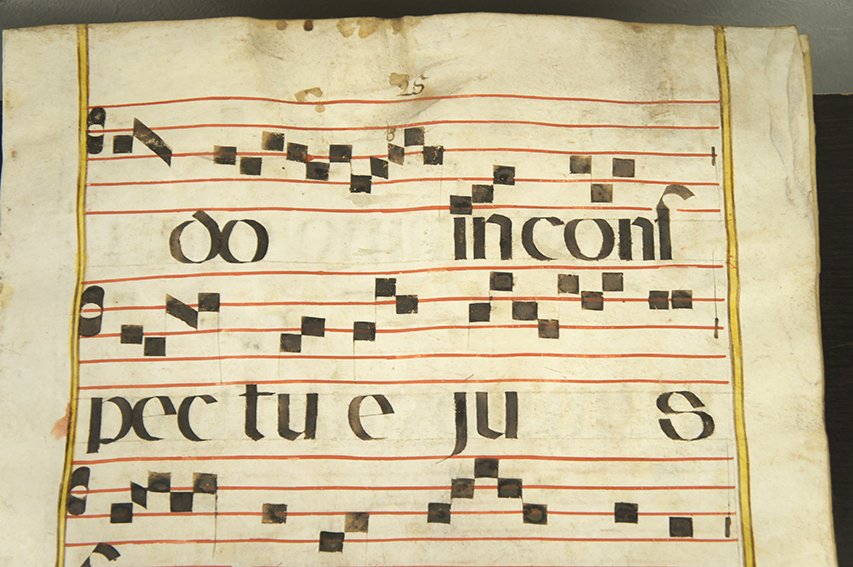 25
do in conſ
pec tu e ju s